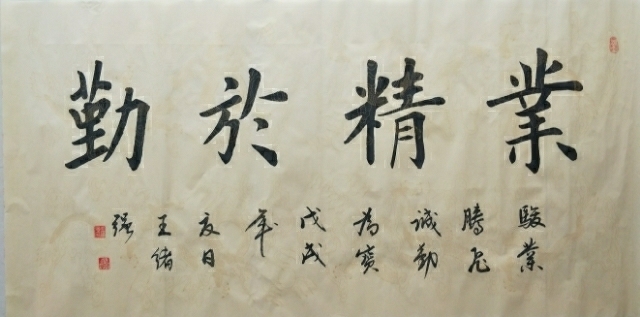 業精於勤
駿業
騰飛
誠勤
為寶
戊戌
年
夏日
王緒
強